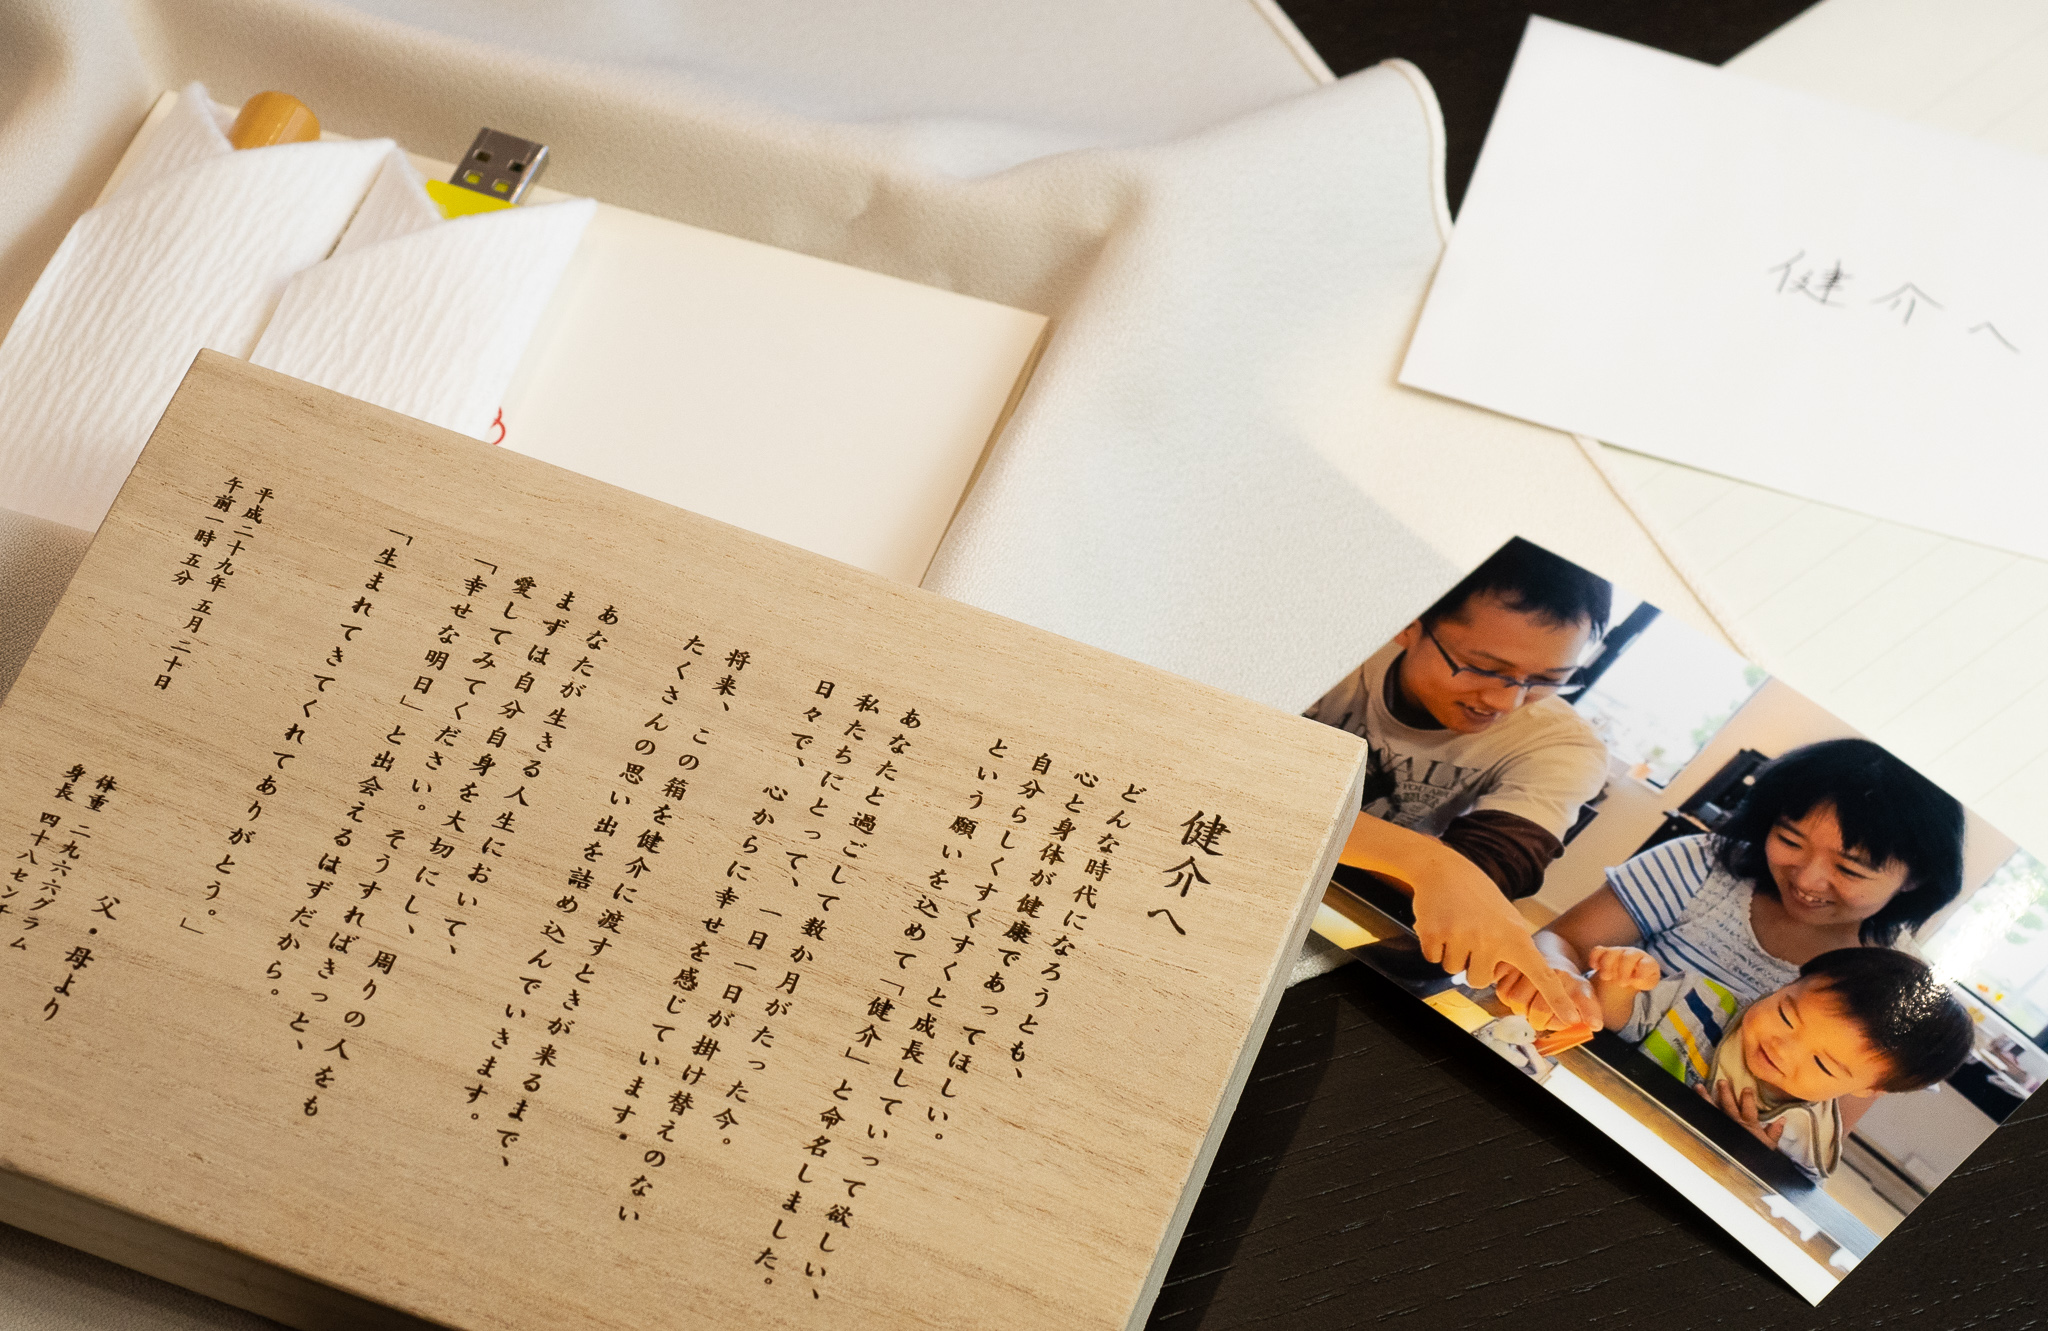 健介へ
どんな時代になろうとも、
心と身体が健康であってほしい。
自分らしくすくすくと成長していって欲しい、
という願いを込めて「健介」と命名しました。
あなたと過ごして数か月がたった今。
私たちにとって、一日一日が掛け替えのない
日々で、心からに幸せを感じています。
将来、この箱を健介に渡すときが来るまで、
たくさんの思い出を詰め込んでいきます。
あなたが生きる人生において、
まずは自分自身を大切にし、周りの人をも
愛してみてください。そうすればきっと、
「幸せな明日」と出会えるはずだから。
「生まれてきてくれてありがとう。」
平成二十九年 五月二十日
午前一時五分
父・母より
体重 二九六六グラム
身長 四十八センチ
健介へ